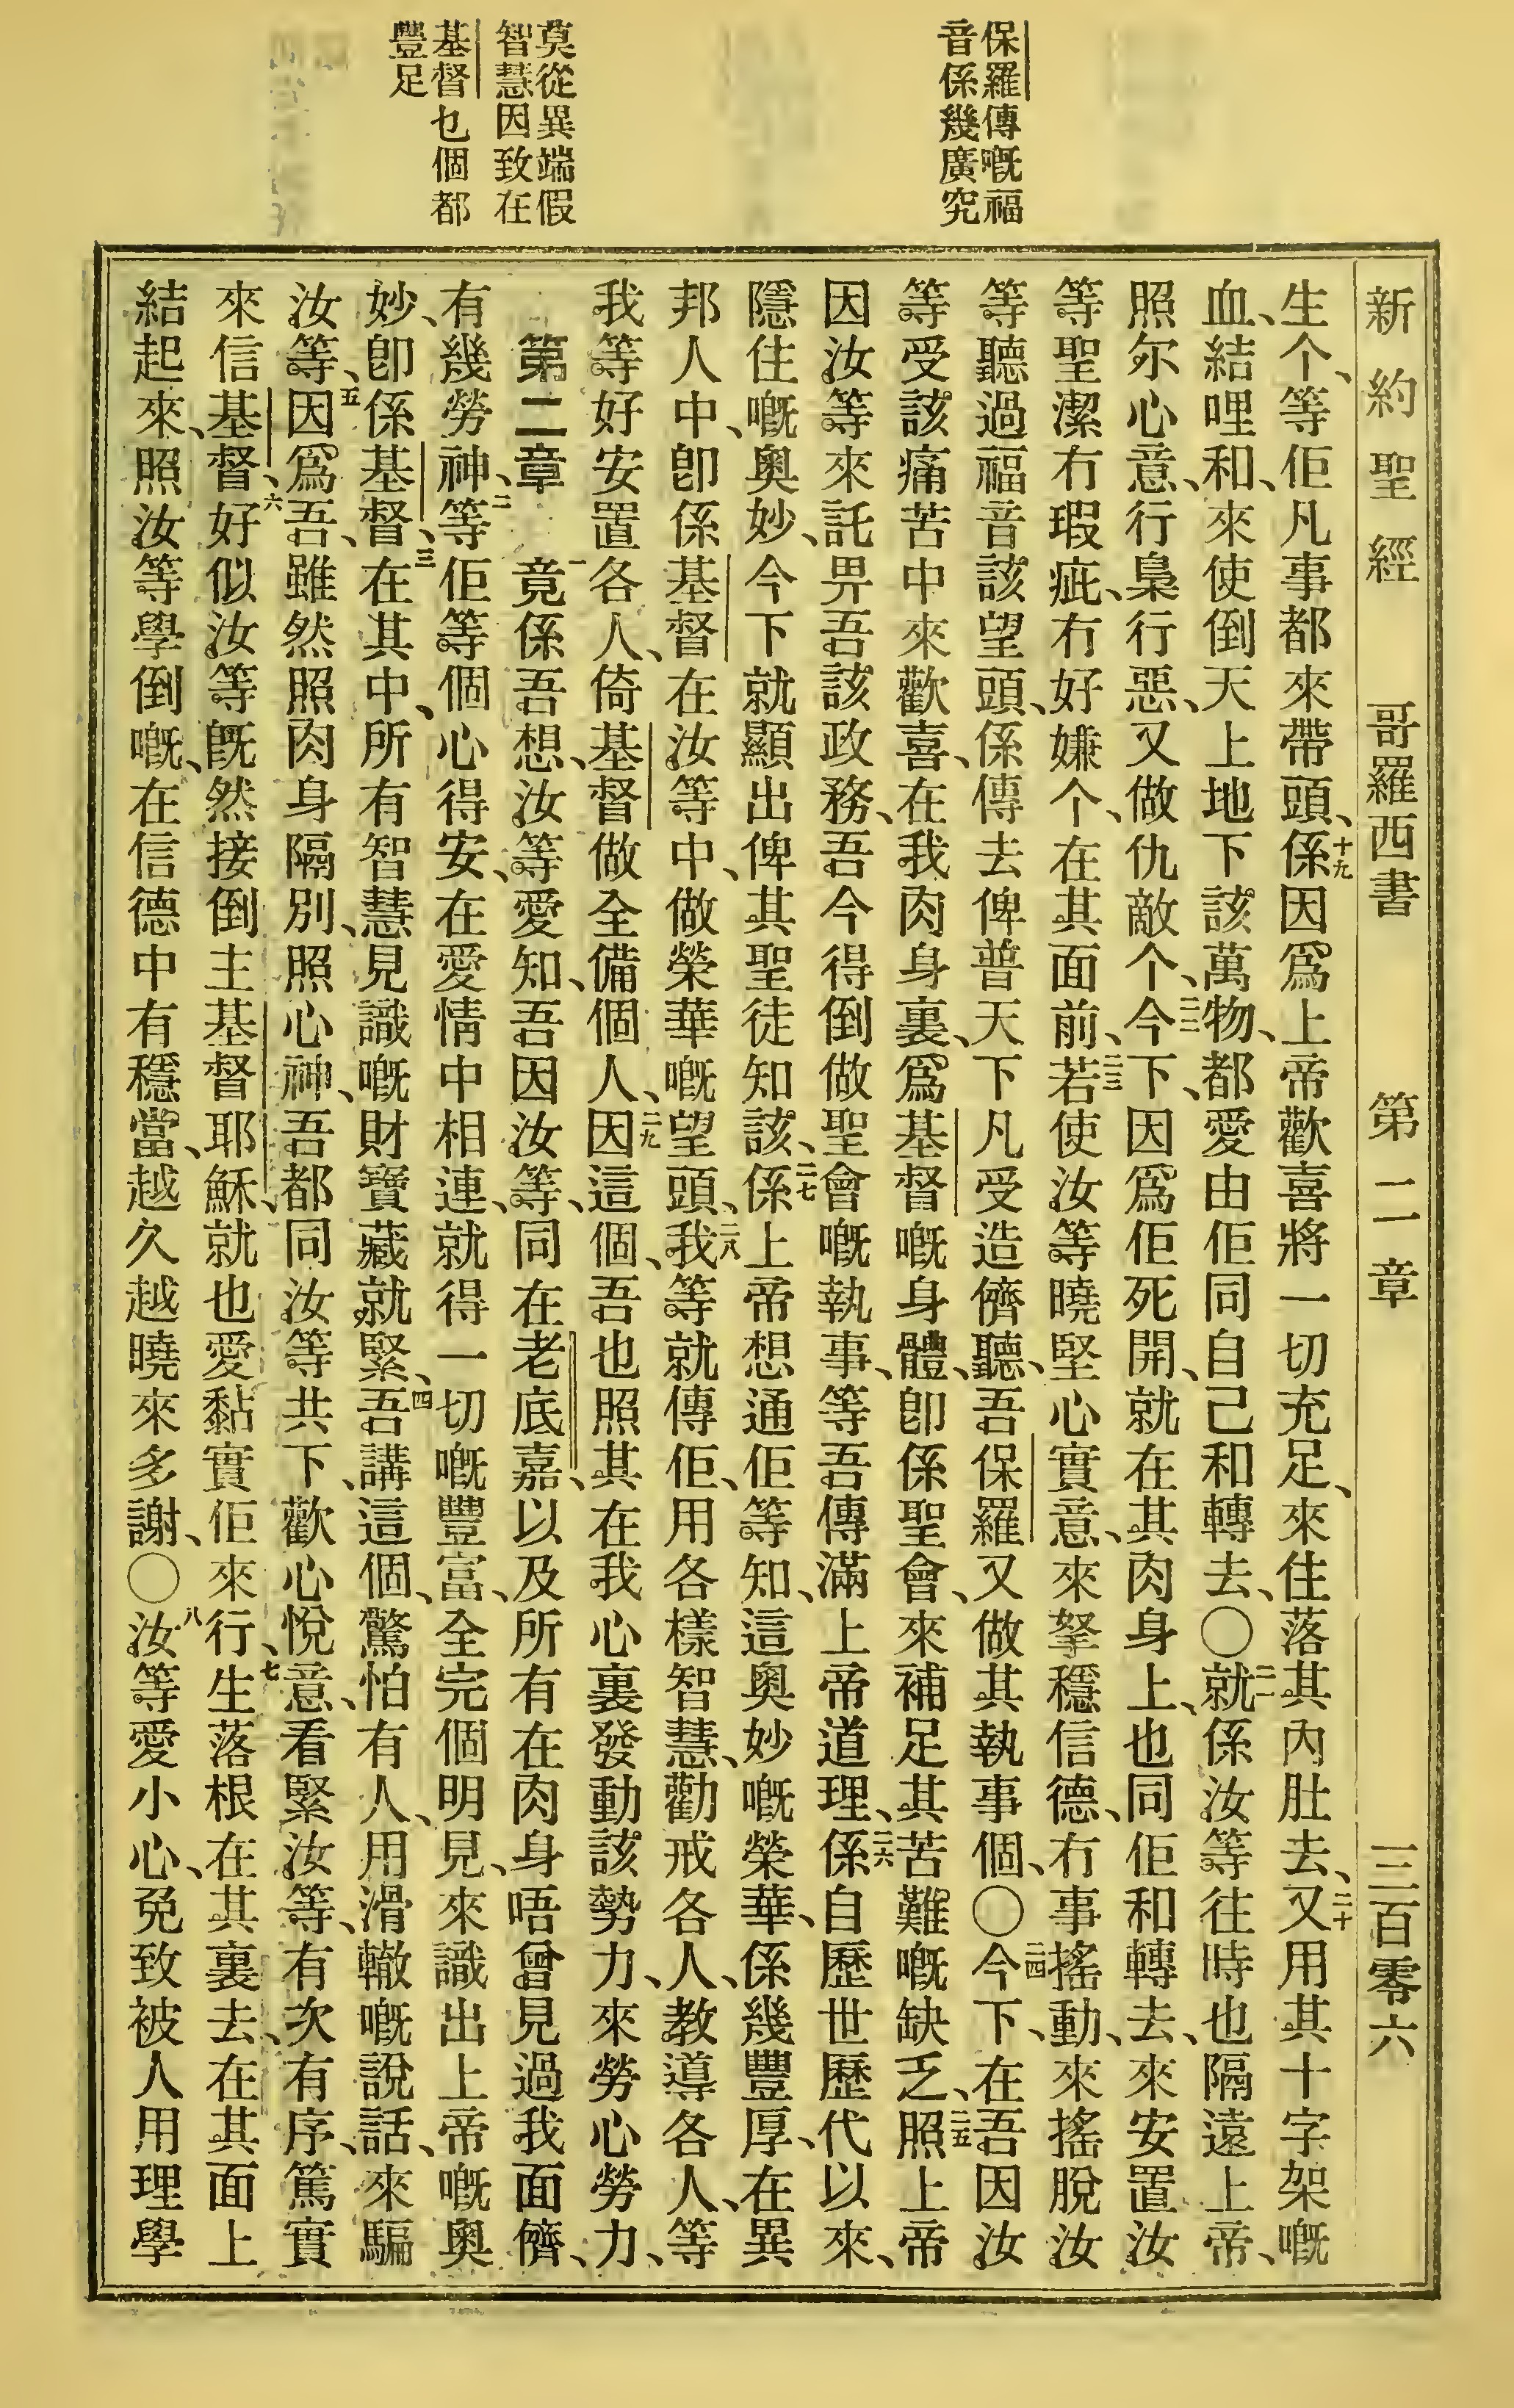 保羅傳嘅福
音係幾廣究
莫從異端假
智慧因致在
基督乜個都
豐足
新約聖經 哥羅西書 第二章 三百零六
生个、等佢凡事都來帶頭、十九係因爲上帝歡喜將一切充足、來住落其內肚去、二十又用其十字架嘅
血、結哩和、來使倒天上地下該萬物、都愛由佢同自己和轉去、〇二一就係汝等往時也隔遠上帝、
照尔心意、行梟行惡、又做仇敵个、二二今下、因爲佢死開、就在其肉身上、也同佢和轉去、來安置汝
等聖潔冇瑕疵、冇好嫌个、在其面前、二三若使汝等曉堅心實意、來拏穩信德、冇事搖動、來搖脫汝
等聽過福音該望頭、係傳去俾普天下凡受造儕聽、吾保羅又做其執事個、〇二四今下、在吾因汝
等受該痛苦中來歡喜、在我肉身裏、爲基督嘅身體、卽係聖會、來補足其苦難嘅缺乏、二五照上帝
因汝等來託畀吾該政務、吾今得倒做聖會嘅執事、等吾傳滿上帝道理、二六係自歷世歷代以來、
隱住嘅奧妙、今下就顯出俾其聖徒知該、二七係上帝想通佢等知、這奧妙嘅榮華、係幾豐厚、在異
邦人中、卽係基督在汝等中、做榮華嘅望頭、二八我等就傳佢、用各樣智慧、勸戒各人、教導各人、等
我等好安置各人、倚基督做全備個人、二九因這個、吾也照其在我心裏發動該勢力、來勞心勞力、
第二章 一竟係吾想、汝等愛知、吾因汝等、同在老底嘉、以及所有在肉身唔曾見過我面儕、
有幾勞神、二等佢等個心得安、在愛情中相連、就得一切嘅豐富、全完個明見、來識出上帝嘅奧
妙、卽係基督、三在其中、所有智慧見識嘅財寶藏就緊、四吾講這個、驚怕有人、用滑轍嘅說話、來騙
汝等、五因爲吾、雖然照肉身隔別、照心神、吾都同汝等共下、歡心悅意、看緊汝等、有次有序、篤實
來信基督、六好似汝等旣然接倒主基督耶穌、就也愛黏實佢來行、七生落根在其裏去、在其面上
結起來、照汝等學倒嘅、在信德中有穩當、越久越曉來多謝、〇八汝等愛小心、免致被人用理學